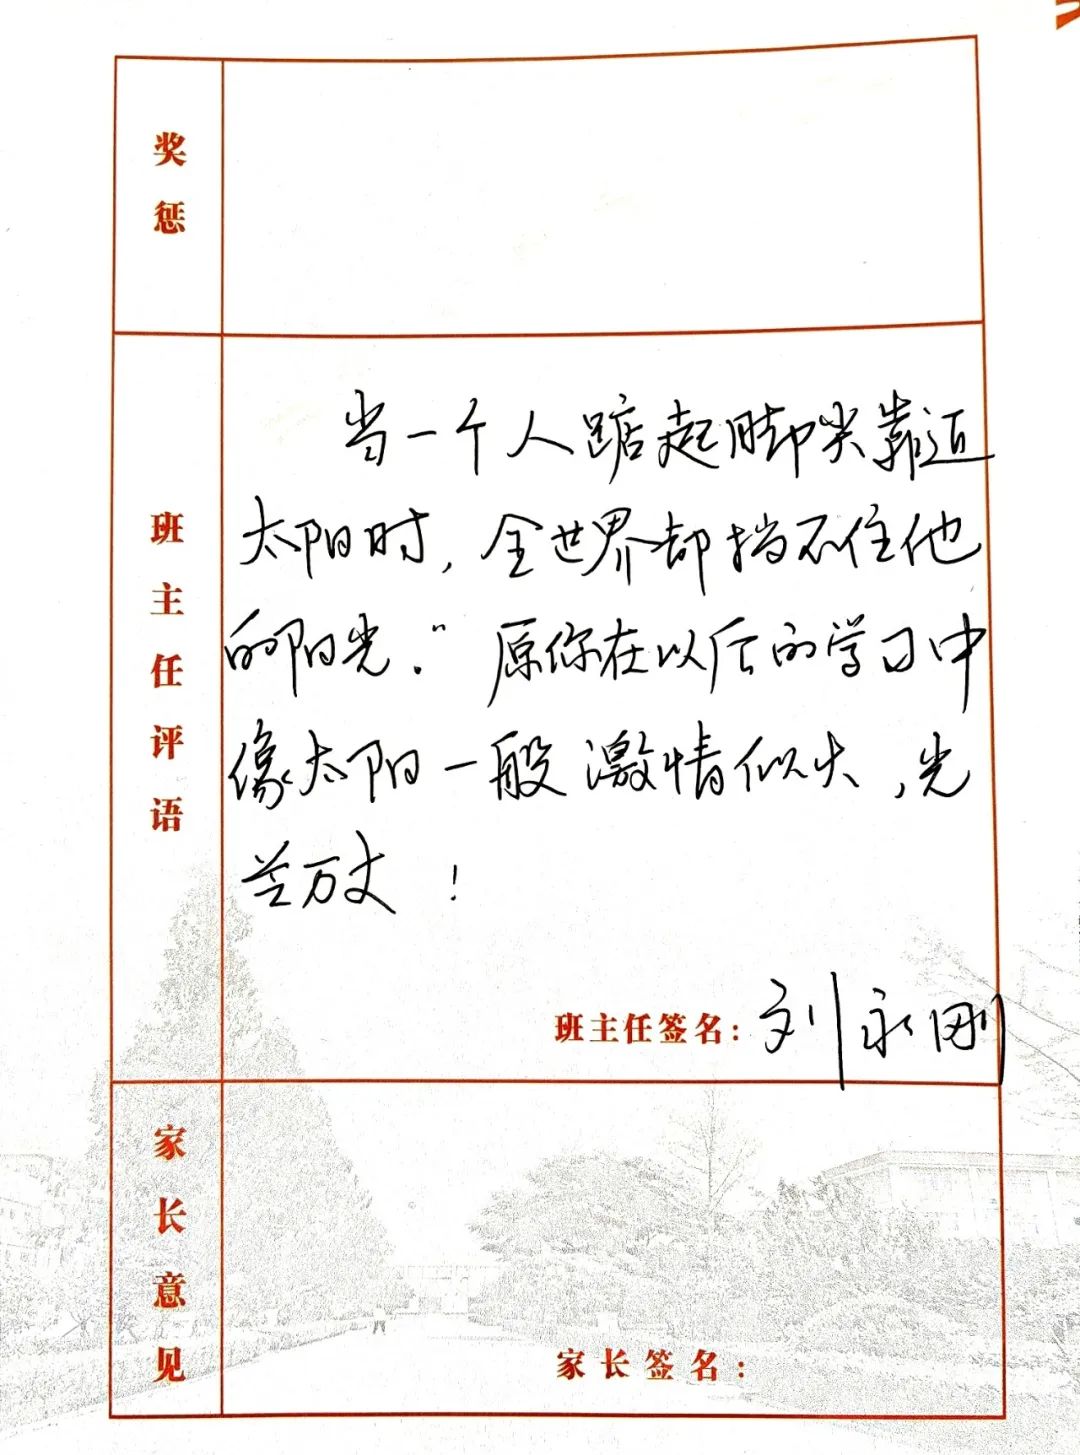 奖惩
班主任评语
当一个人踮起脚尖靠近
太阳时,全世界都挡不住他
的阳光."原你在以后的学习中
像太阳一般激情似火,光
芒万丈!
班主任签名:刘永刚
家长意见
家长签名: